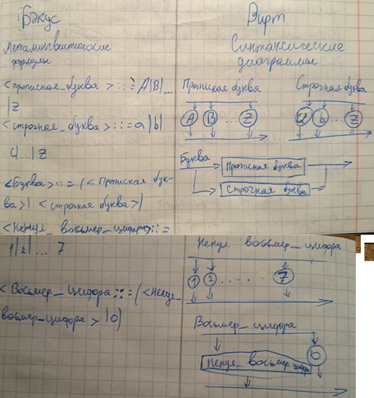 Бэкус
Металингвистические
формулы
<прописная_буква>::=A|B|...
|z
<строчная_буква>::=a|b|
c|...|z
<Буква>::=(<Прописная бук-
ва>|<строчная буква>)
<Ненул_восьмер_цифра>::=
1|2|...7
<Восьмер_цифра::=(<ненул_
восьмер_цифра>|0)
Вирт
Синтаксические
диаграммы
Прописная буква
A B ... Z
Строчная буква
a b ... z
Буква
Прописная буква
Строчная буква
Ненул. восьмер_цифра
1 2 ..... 7
Восьмер_цифра
Ненул_восьмер цифра
0